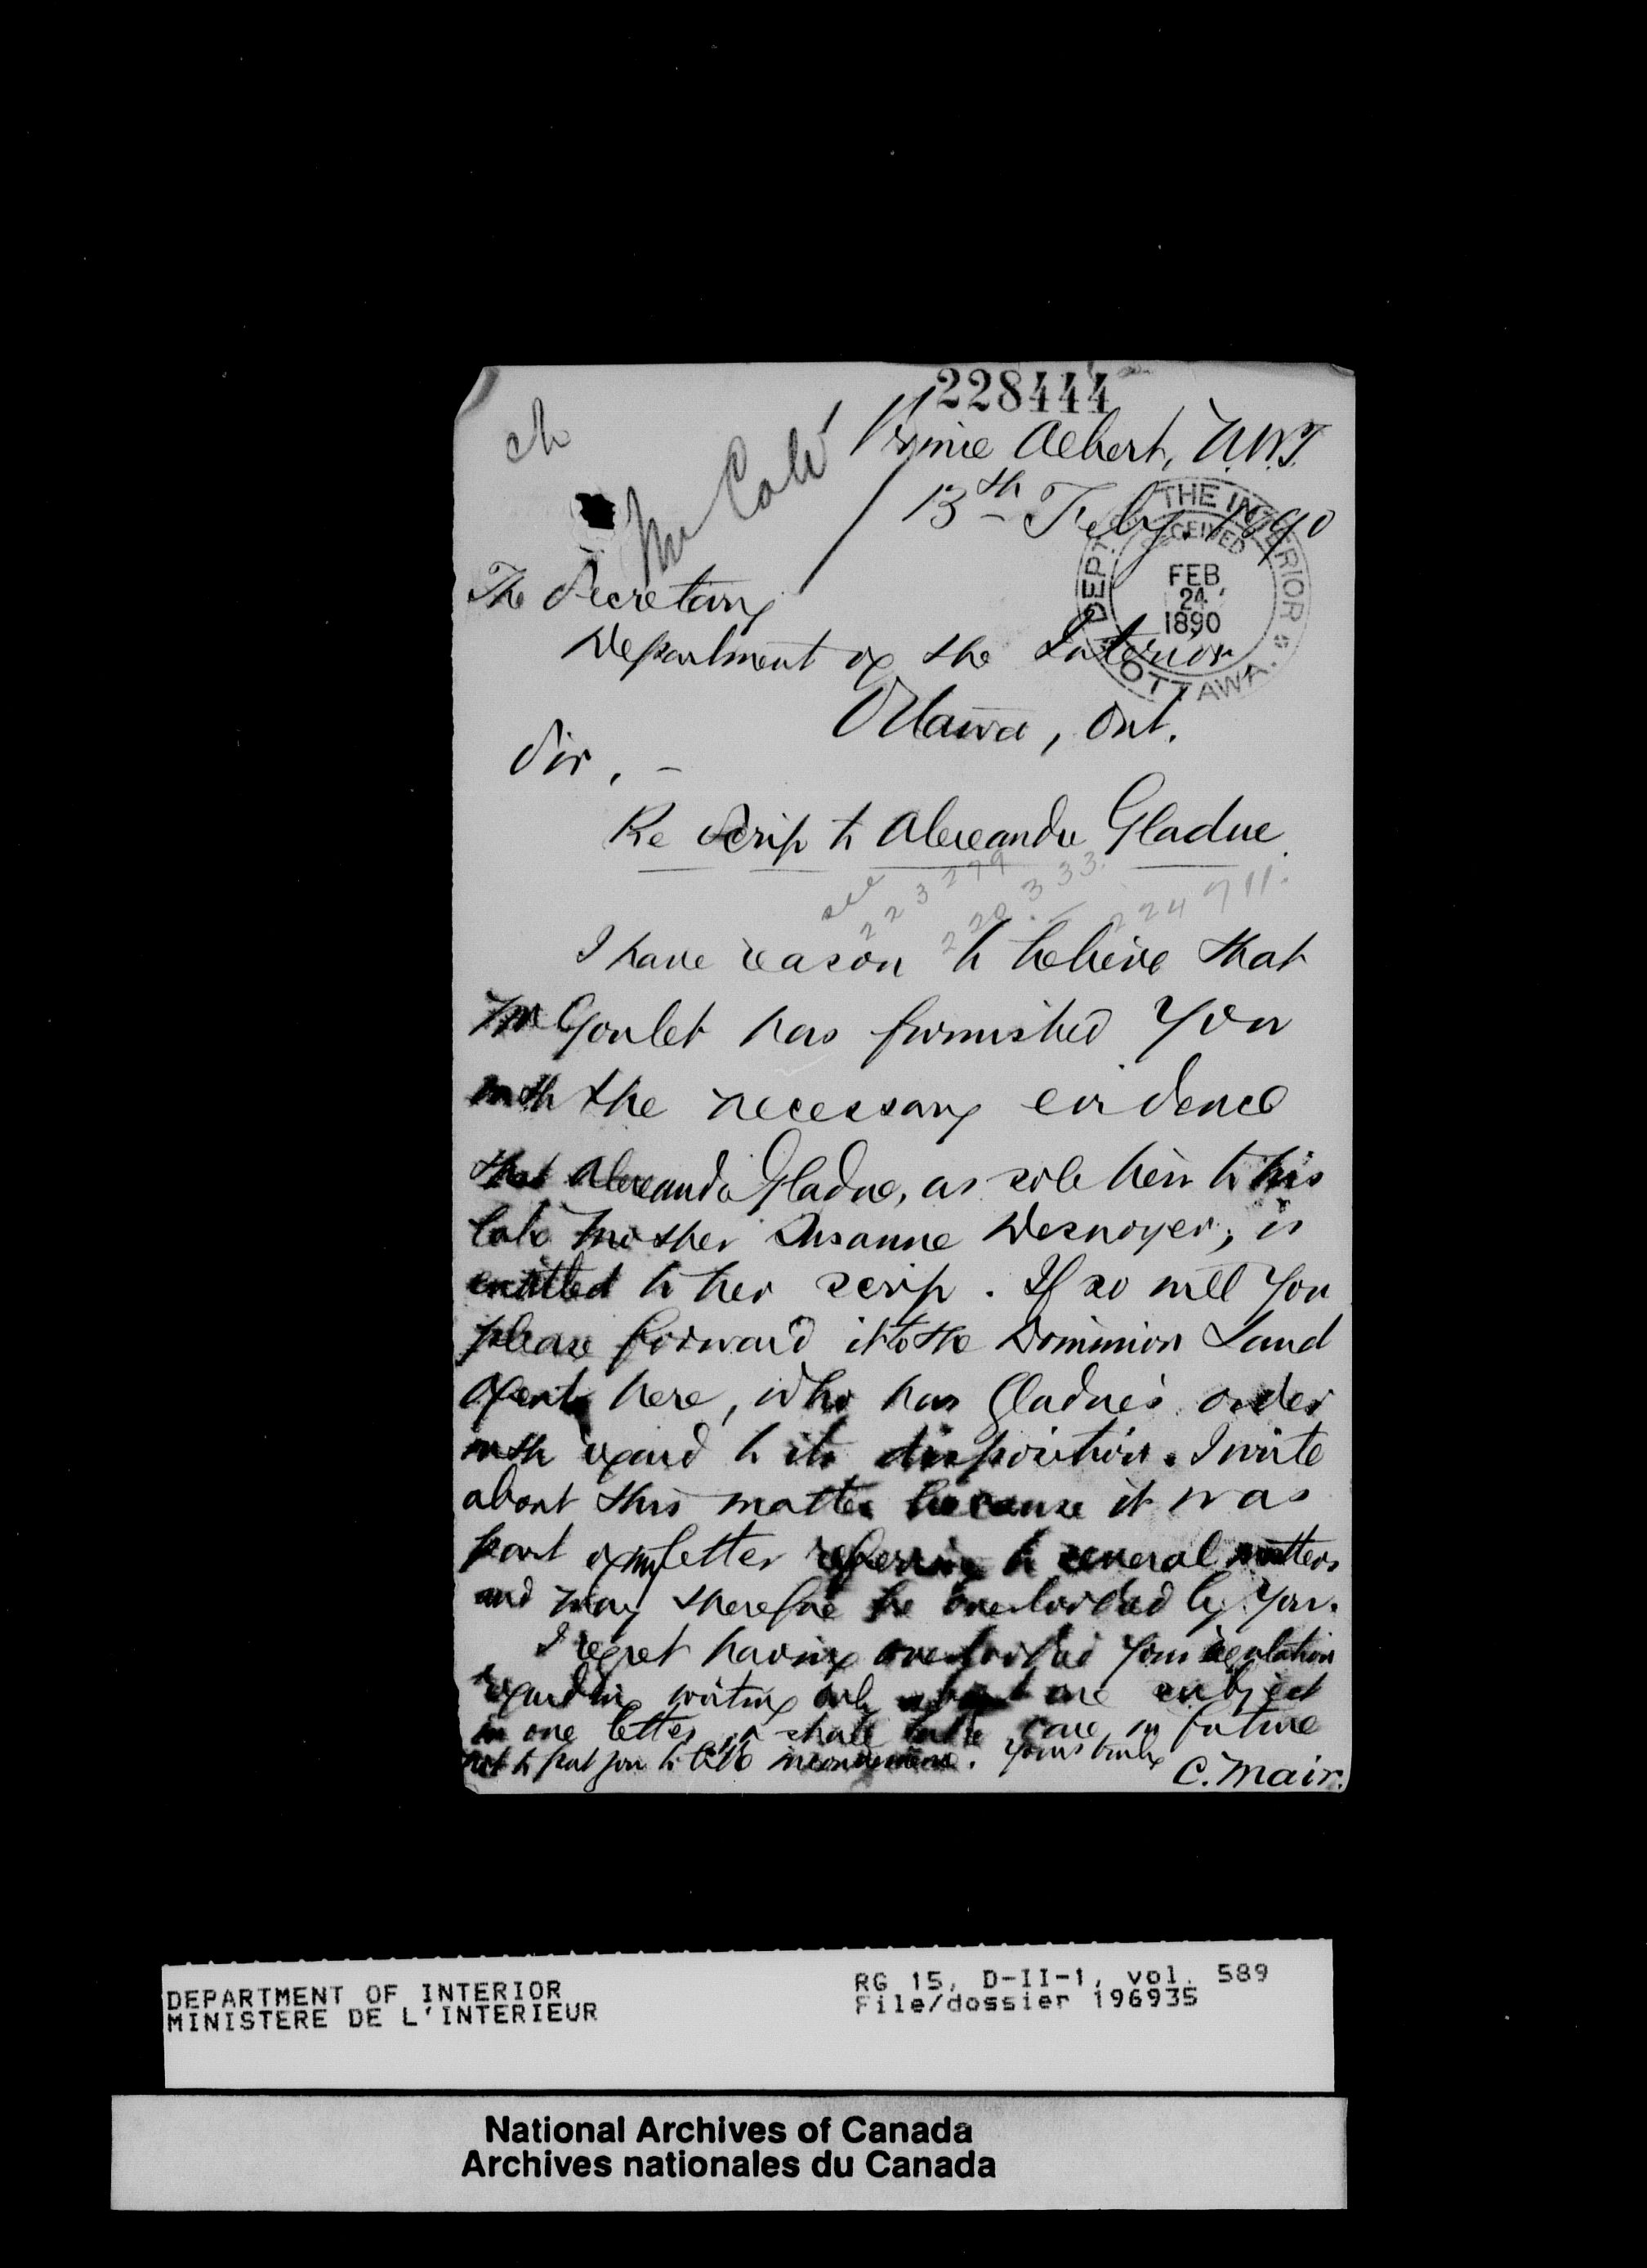 228444
Prince Albert, N.W.T.
13th Feby. 1890
ch
Mr Coté
DEPT. OF THE INTERIOR
RECEIVED
FEB
24
1890
OTTAWA.
The Secretary
Department of the Interior
Ottawa, Ont.
Sir, -
Re Scrip to Alexandre Gladue.
see
223279
220333.
224711.
I have reason to believe that
Mr Goulet has furnished you
with the necessary evidence
that Alexandre Gladue, as sole heir to his
late mother Susanne Desnoyer, is
entitled to her scrip. If so will you
please forward it to the Dominion Land
Agent here, who has Gladue's order
with regard to its disposition. I write
about this matter because it was
part of my letter referring to several matters
and may therefore be overlooked by you.
I regret having overlooked your regulation
regarding writing only about one subject
in one letter, & shall take care in future
not to put you to like inconvenience. Yours truly
C. Mair.
DEPARTMENT OF INTERIOR
MINISTERE DE L'INTERIEUR
RG 15, D-II-1, vol. 589
File/dossier 196935
National Archives of Canada
Archives nationales du Canada